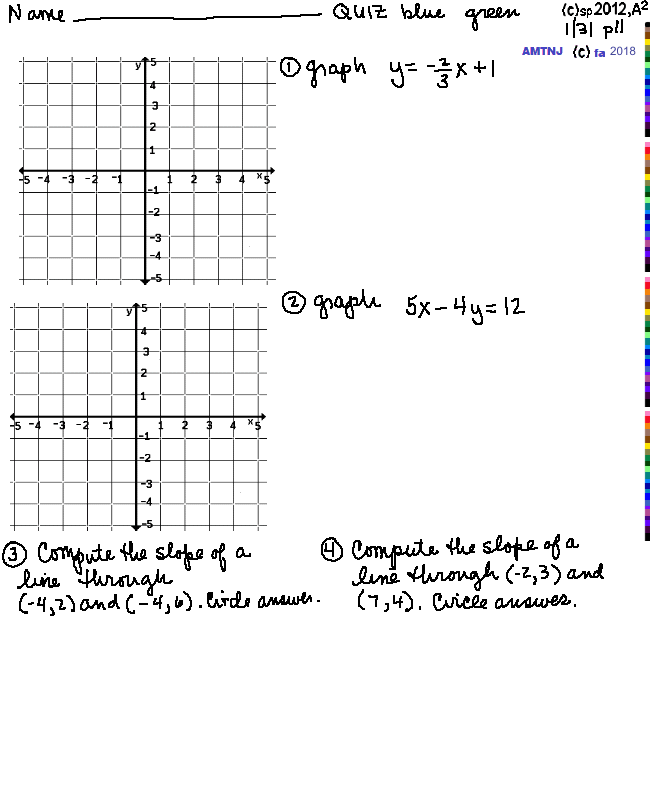 Name ____________ QUIZ blue green (c)sp2012,A²
1/31 p11
AMTNJ (c) fa 2018
① graph y = -2/3x + 1
y 5
4
3
2
1
-5 -4 -3 -2 -1 1 2 3 4 x 5
-1
-2
-3
-4
-5
② graph 5x - 4y = 12
y 5
4
3
2
1
-5 -4 -3 -2 -1 1 2 3 4 x 5
-1
-2
-3
-4
-5
③ Compute the slope of a
line through
(-4,2) and (-4,6). Circle answer.
④ Compute the slope of a
line through (-2,3) and
(7,4). Circle answer.